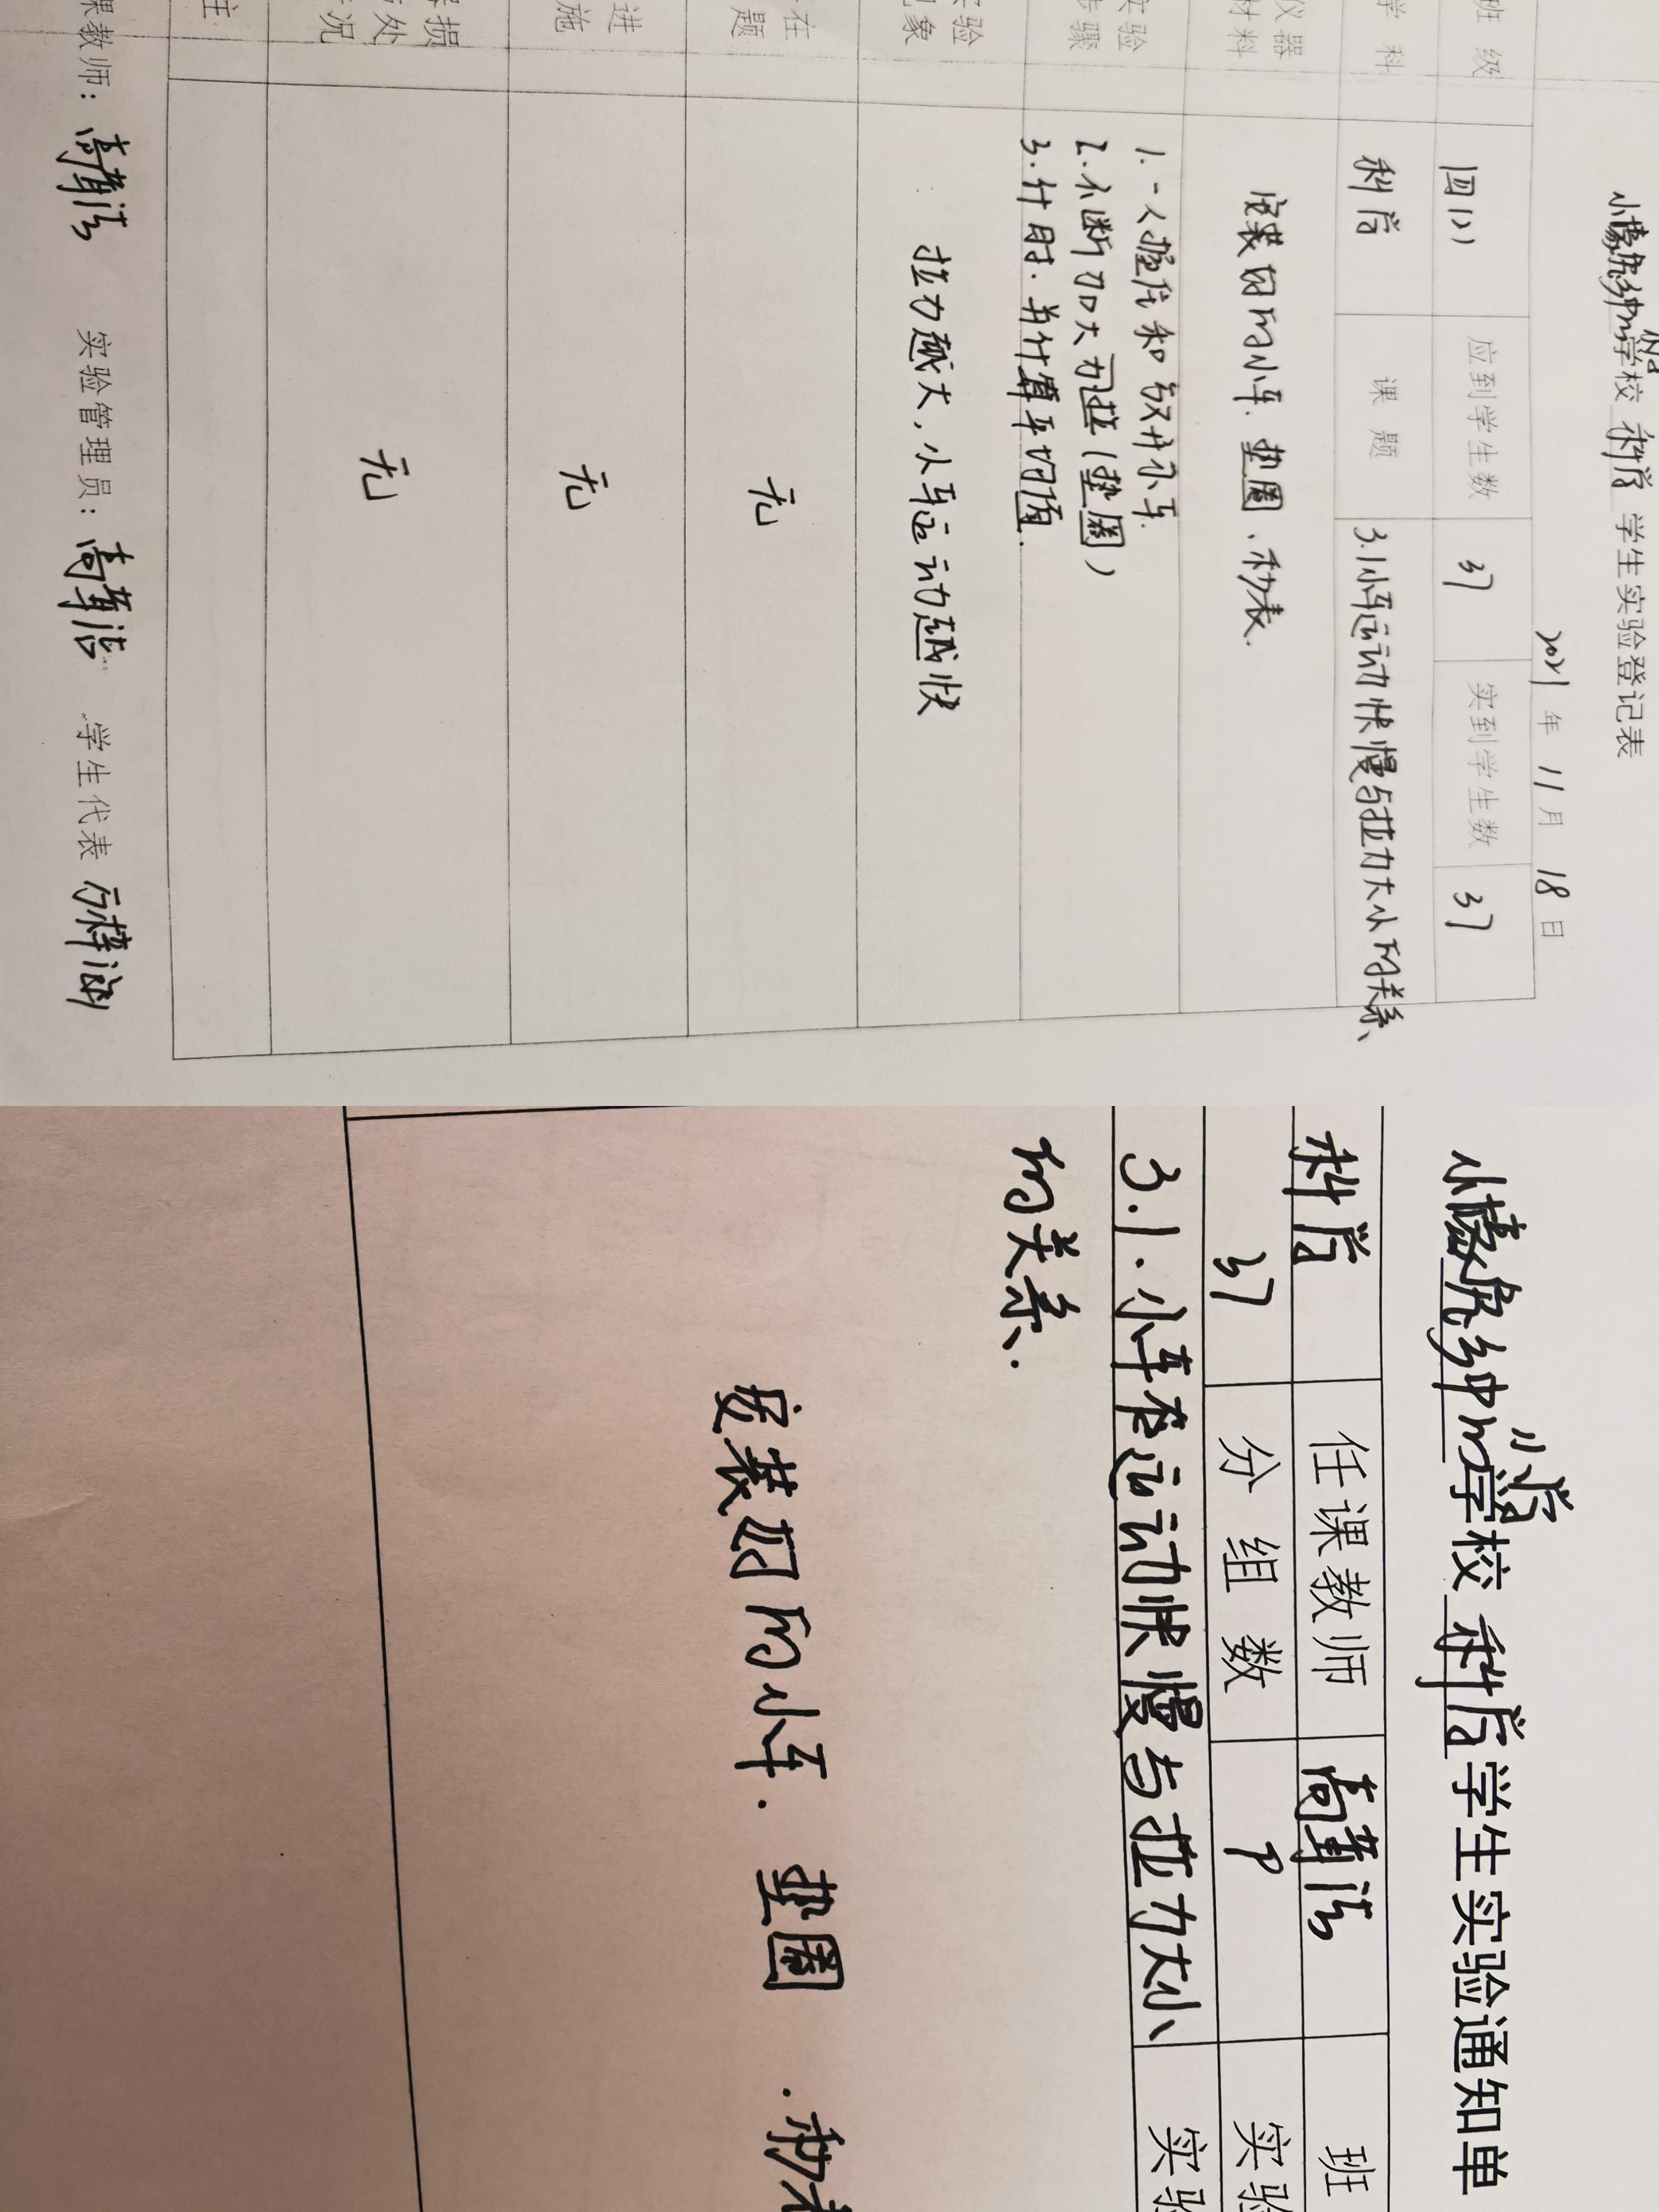 学校 科学 学生实验登记表
2021年 11月 18日
班级 四(1) 应到学生数 37 实到学生数 37
学科 科学 课题 3.1小车运动快慢与拉力大小的关系
仪器材料 安装好的小车、垫圈、秒表.
实验步骤 1.一人握住和放开小车.
2.不断加大力拉(垫圈)
3.计时.并计算平均值.
实验现象 拉力越大,小车运动越快
在题 无
进施 无
损处况 无
主
课教师: 实验管理员: 学生代表
小学
学校 科学 学生实验通知单
科学 任课教师 班
37 分组数 9 实验
3.1.小车在运动快慢与拉力大小 实验
的关系.
安装好的小车. 垫圈 .秒表